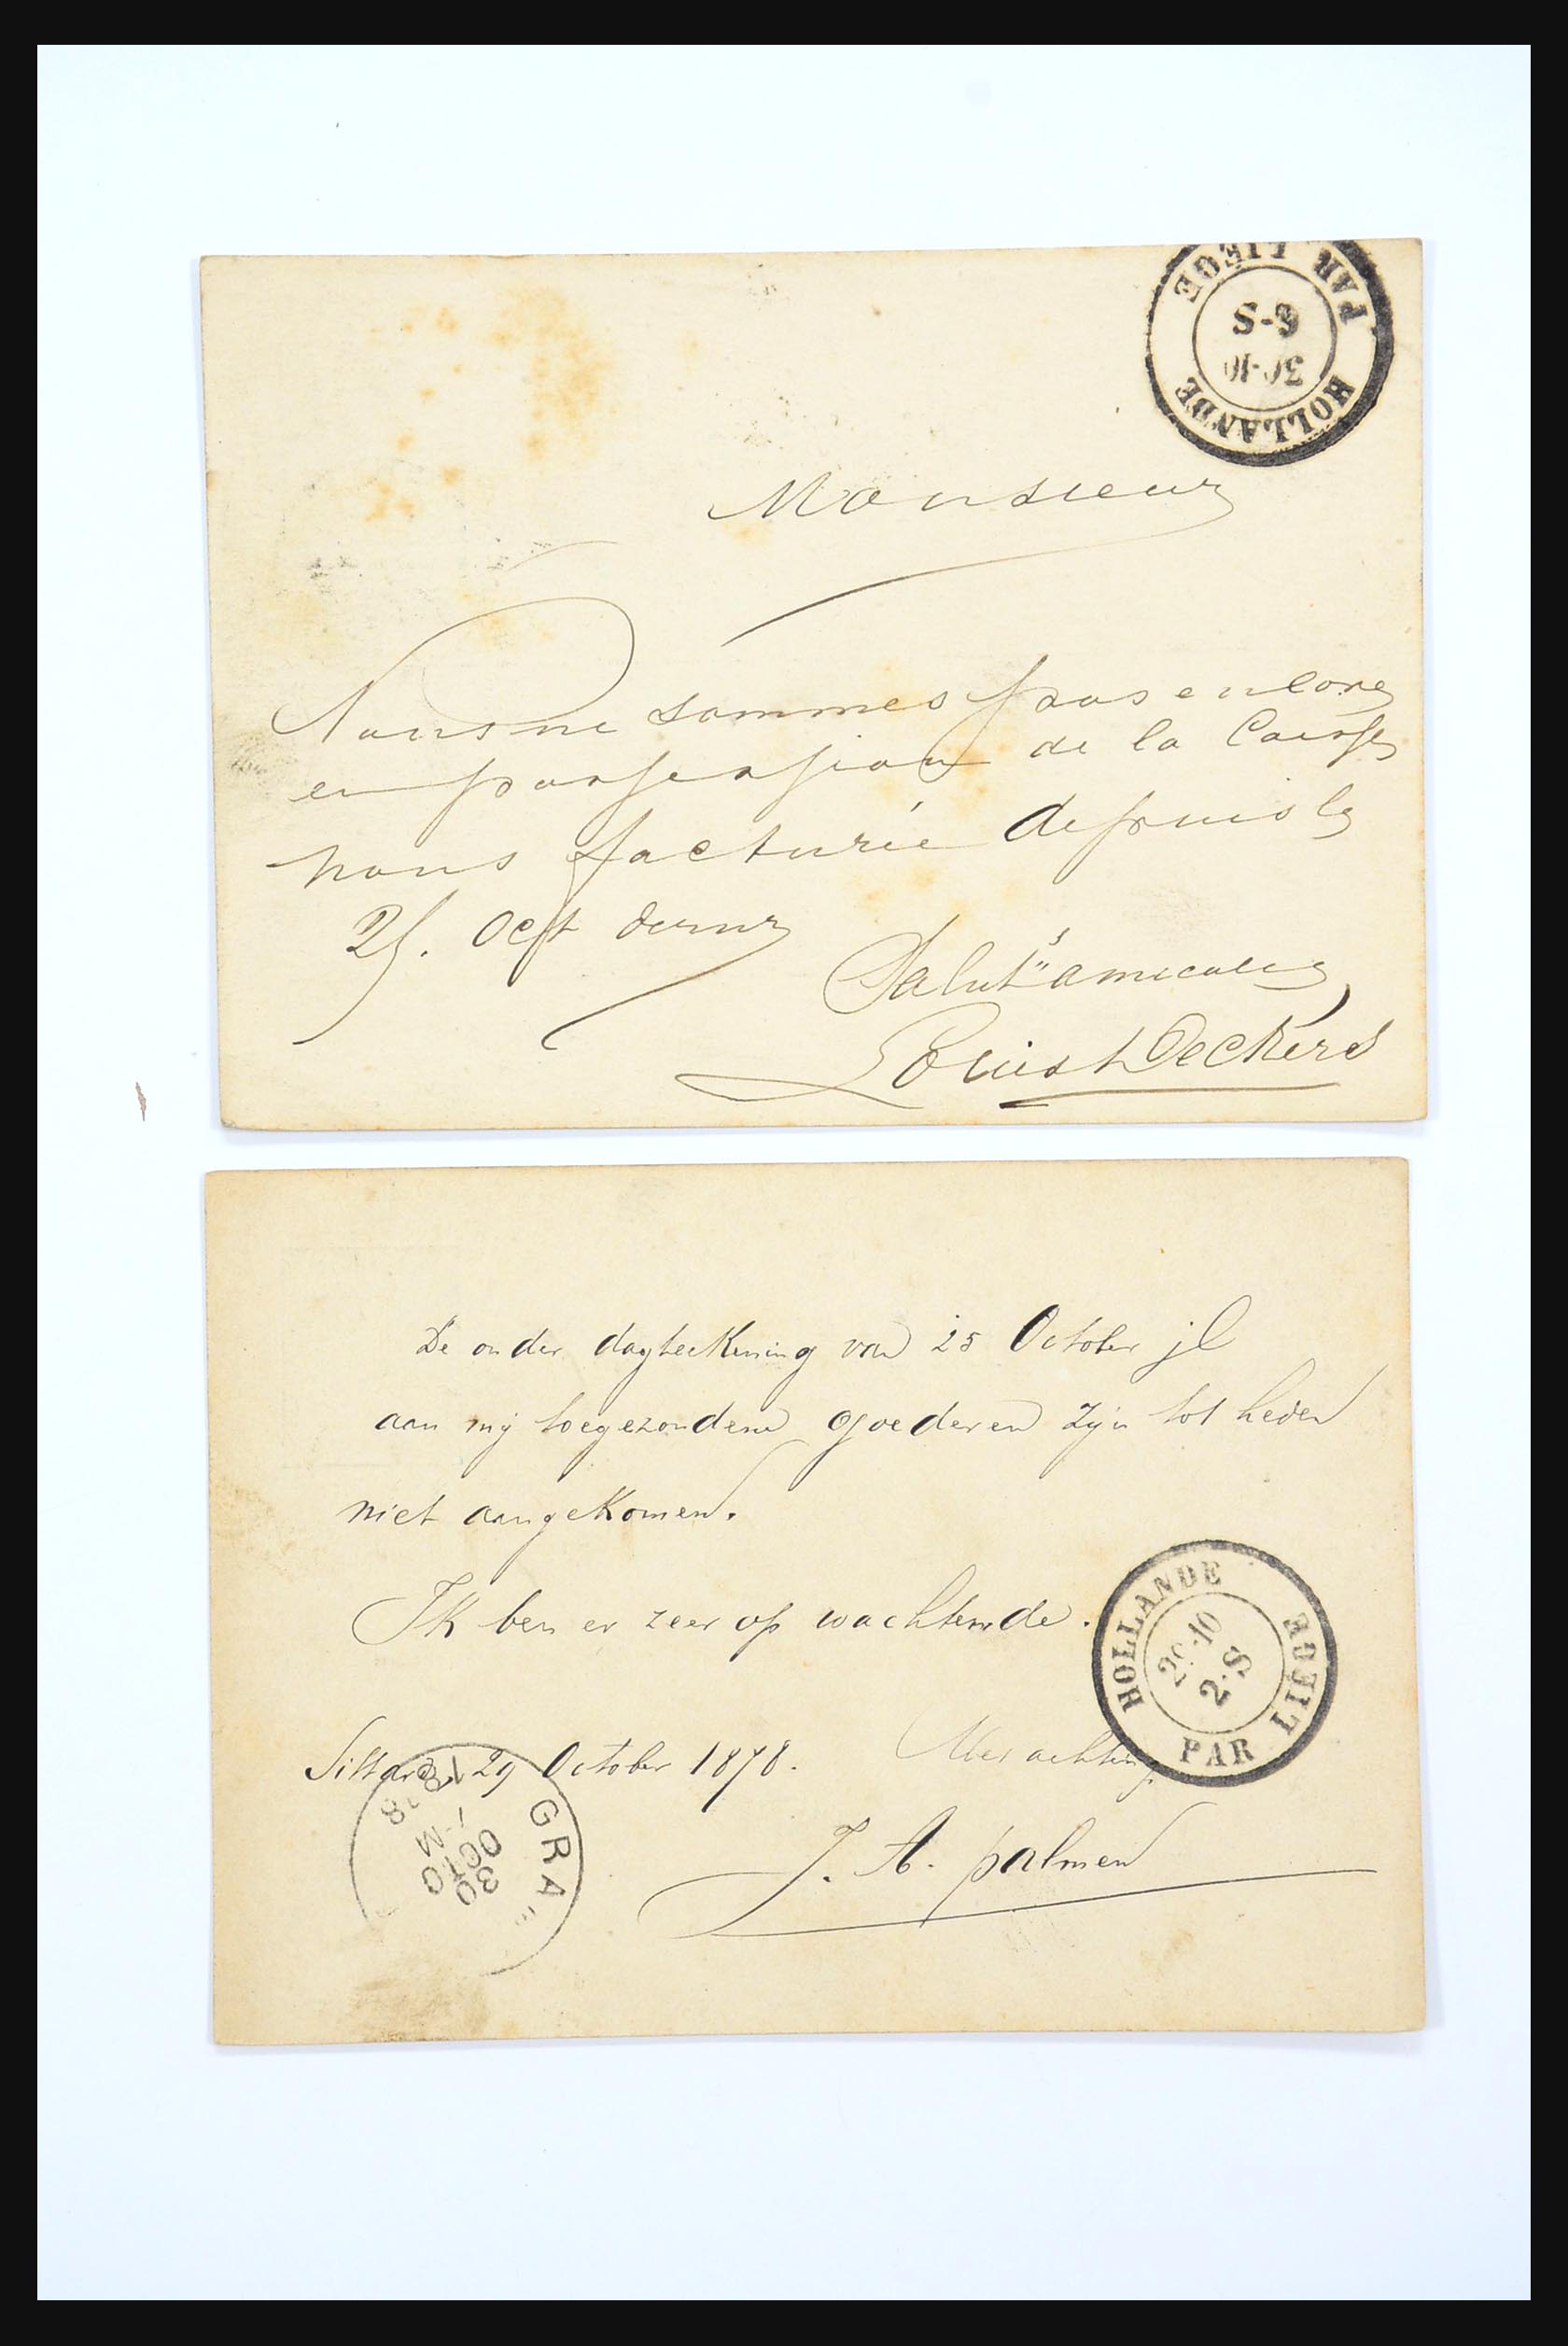 HOLLANDE
PAR LIÉGE
30-10
6-S
Monsieur
Nous ne sommes pas encore
en possession de la Caisse
nous facturée depuis le
25. Oct dernr
Salutns amicales
Louis Deckers
De onder dagteekening van 25 October jl
aan mij toegezonden goederen zijn tot heden
niet aangekomen.
Ik ben er zeer op wachtende.
HOLLANDE
PAR LIÉGE
29-10
2-S
Sittard 29 October 1878.
Met achting
GRA
30
OCTO
J. A. palmen